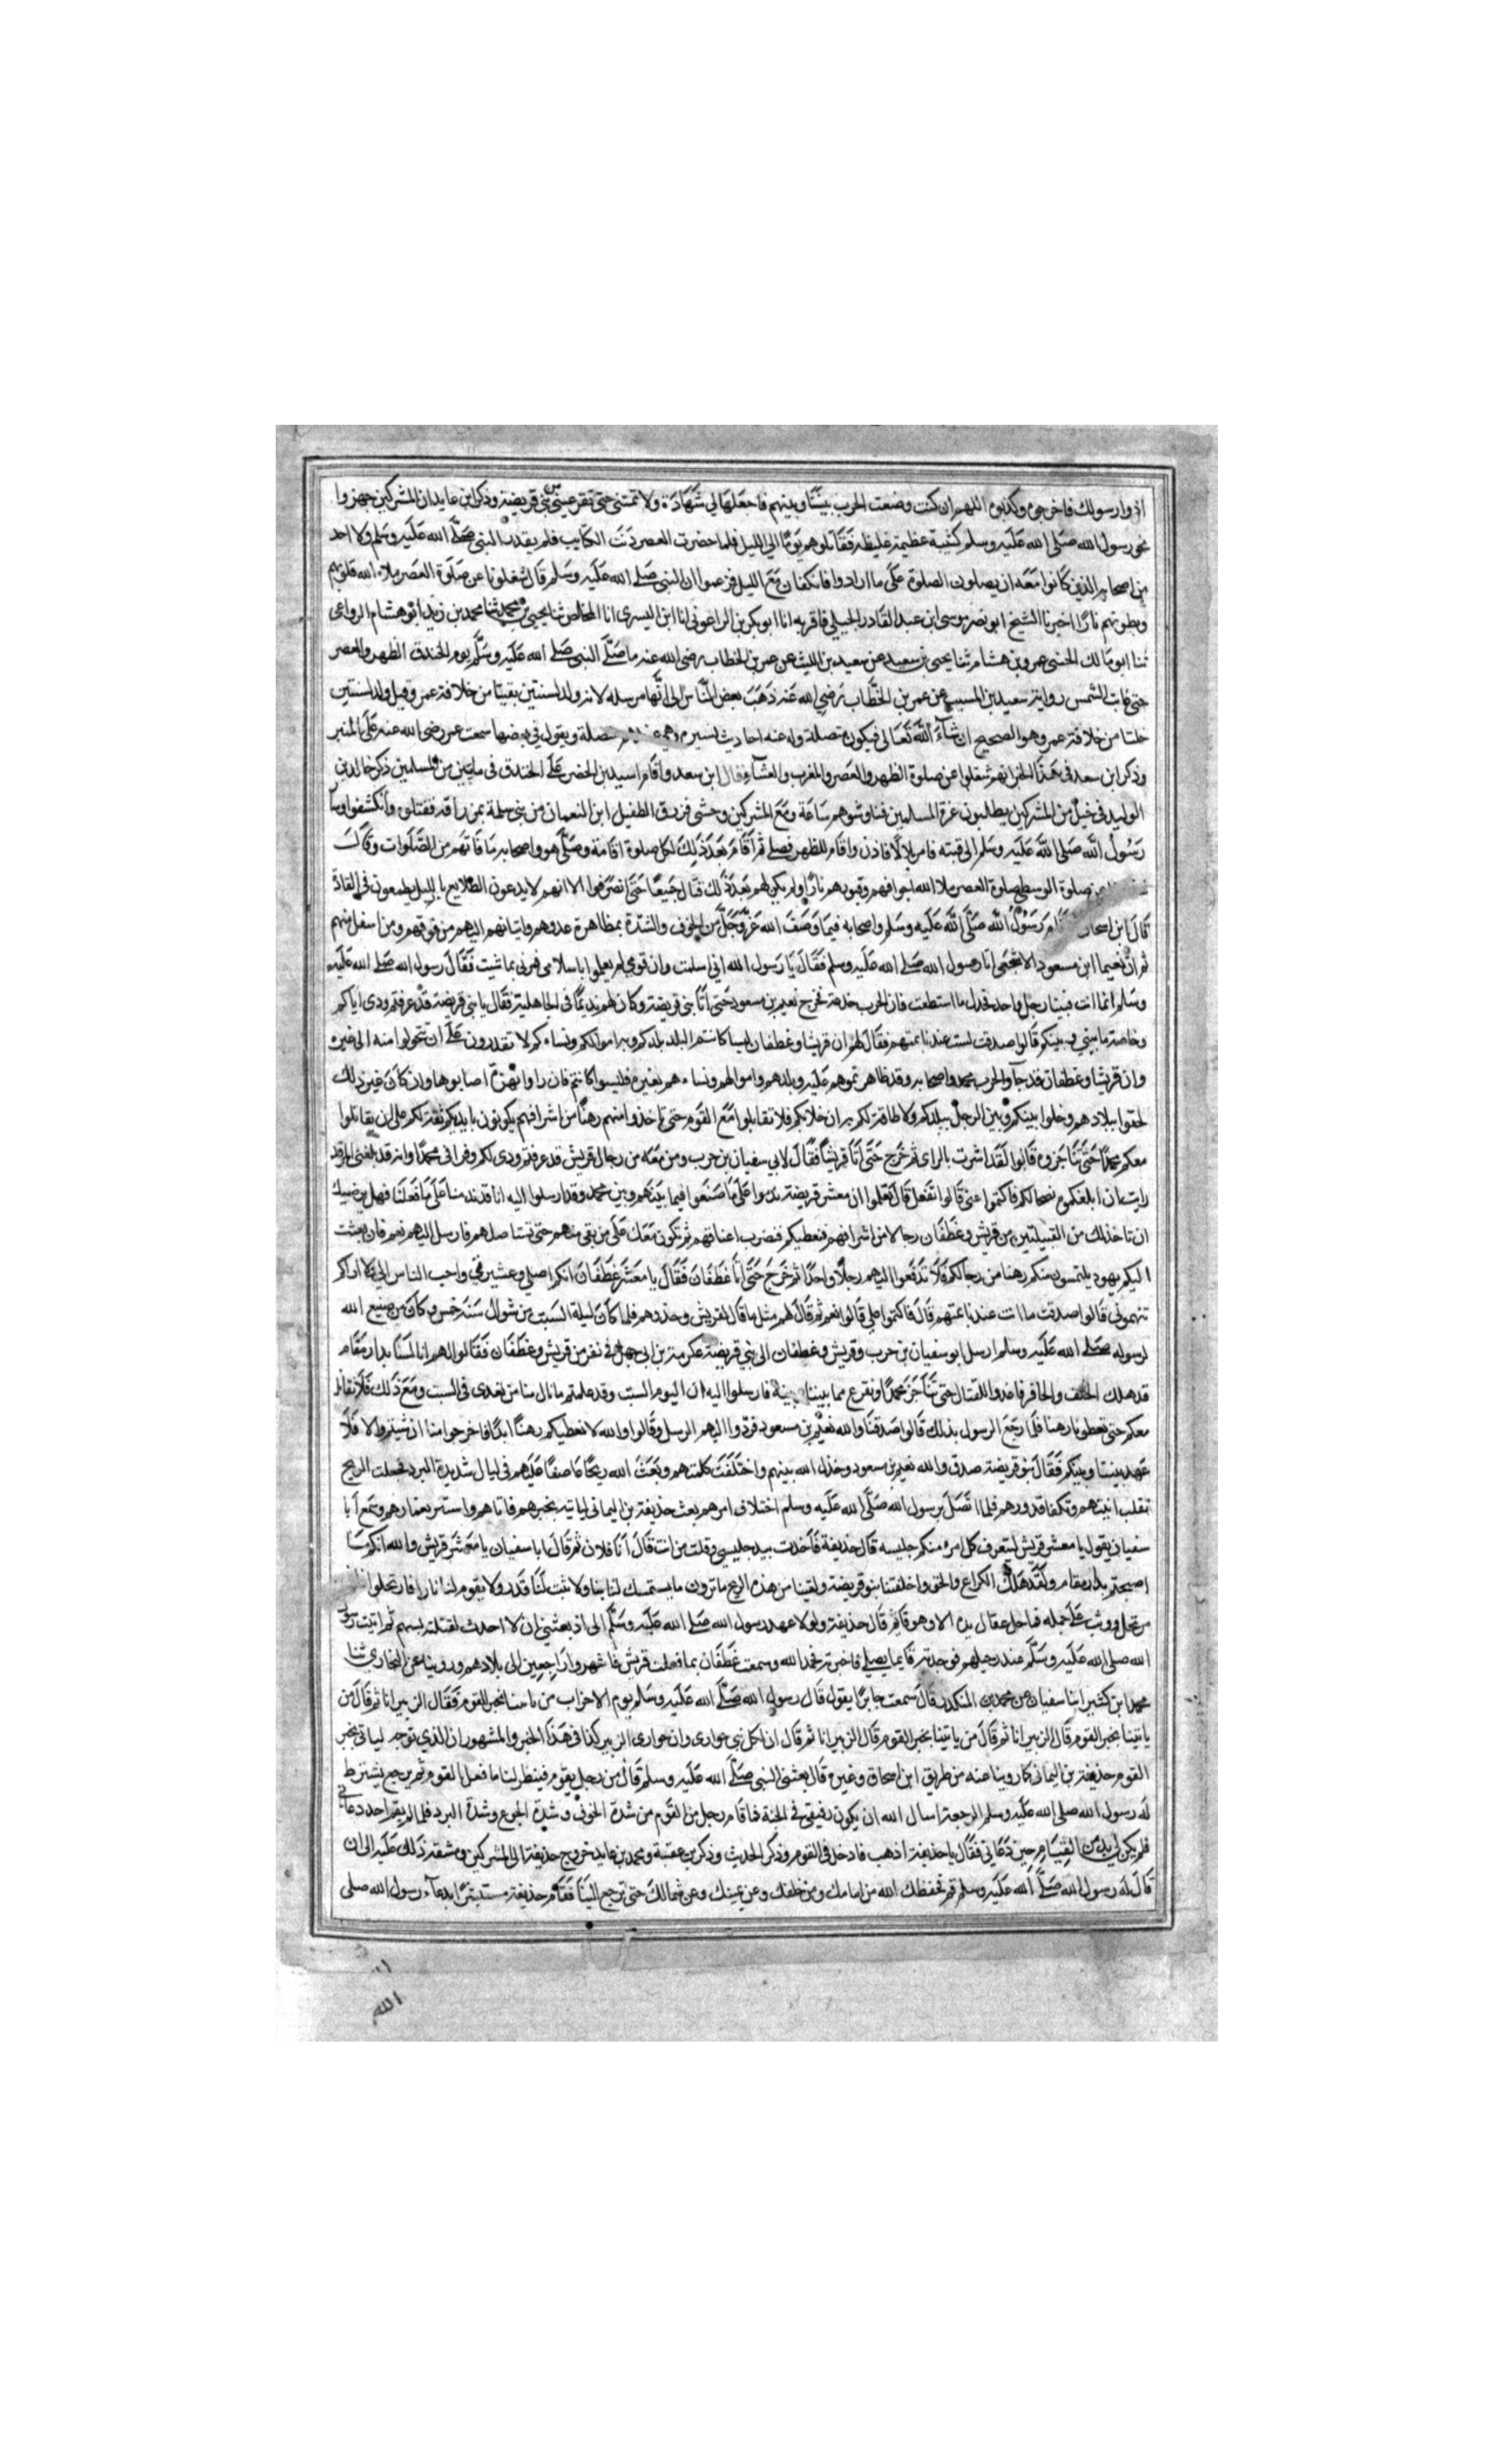 اذوا رسولك فاخرجوه وكذبوه اللهم ان كنت وضعت الحرب بيننا وبينهم فاجعلها لي شهادة ولا تمتني حتى تقر عيني من بني قريضة وذكر ابن عايد ان المشركين جهزوا
نحو رسول الله صلى الله عليه وسلم كتيبة عظيمة غليظة فقاتلوهم يوما الى الليل فلما حضرت العصر دنت الكتايب فلم يقدر النبي صلى الله عليه وسلم ولا احد
من اصحابه الذين كانوا معه ان يصلون الصلوة على ما ارادوا فانكفات مع الليل فزعموا ان النبي صلى الله عليه وسلم قال شغلونا عن صلوة العصر ملاء الله قلوبهم
وبطونهم نارا اخبرنا الشيخ ابو نصر موسى ابن عبد القادر الجيلي فاقر به انا ابو بكر بن الزاغوني انا ابن اليسرى انا المخلص ثنا يحيى بن محمد ثنا محمد بن زيد ابو هشام الرواعي
ثنا ابو مالك الجنبي عمرو بن هشام ثنا يحيى بن سعيد عن سعيد بن الليث عن عمر بن الخطاب رضي الله عنه ما صلى النبي صلى الله عليه وسلم يوم الخندق الظهر والعصر
حتى غابت الشمس رواية سعيد بن المسيب عن عمر بن الخطاب رضي الله عنه ذهب بعض الناس الى انها مرسلة لانه ولد لسنتين بقيتا من خلافة عمر وقيل ولد لسنتين
خلتا من خلافة عمر وهو الصحيح ان شاء الله تعالى فيكون متصلة وله عنه احاديث يسيرة متصلة ويقول في بعضها سمعت عمر رضي الله عنه على المنبر
وذكر ابن سعد في هذا الخبر انهم شغلوا عن صلوة الظهر والعصر والمغرب والعشاء قال ابن سعد واقام اسيد بن الحضير على الخندق في مايتين من المسلمين ذكر خالد بن
الوليد في خيل من المشركين يطلبون غرة المسلمين فناوشوهم ساعة ومع المشركين وحشي فزرق الطفيل ابن النعمان من بني سلمة بمزراقه فقتله وانكشفوا وسار
رسول الله صلى الله عليه وسلم الى قبته فامر بلالا فاذن واقام للظهر فصلى ثم اقام بعد ذلك لكل صلوة اقامة وصلى هو واصحابه ما فاتهم من الصلوات وقال
عن صلوة الوسطى صلوة العصر ملا الله اجوافهم وقبورهم نارا ولم يكن لهم بعد ذلك قتال جميعا حتى انصرفوا الا انهم لا يدعون الطلايع بالليل يطمعون في الغارة
قال ابن اسحاق واقام رسول الله صلى الله عليه وسلم واصحابه فيما وصف الله عز وجل من الخوف والشدة بمظاهرة عدوهم واتيانهم اليهم من فوقهم ومن اسفل منهم
ثم ان نعيما ابن مسعود الاشجعي اتا رسول الله صلى الله عليه وسلم فقال يا رسول الله اني اسلمت وان قومي لم يعلموا باسلامي فمرني بما شيت فقال رسول الله صلى الله عليه
وسلم انما انت فينا رجل واحد فخذل ما استطعت فان الحرب خدعة فخرج نعيم بن مسعود حتى اتا بني قريضة وكان لهم نديما في الجاهلية فقال يا بني قريضة قد عرفتم ودي اياكم
وخاصة ما بيني وبينكم قالوا صدقت لست عندنا بمتهم فقال لهم ان قريشا وغطفان ليسا كانتم البلد بلدكم وبه اموالكم ونساءكم لا تقدرون على ان تحولوا منه الى غيره
وان قريشا وغطفان قد جاوا لحرب محمد واصحابه وقد ظاهرتموهم عليه وبلدهم واموالهم ونساءهم بغيره فليسوا كانتم فان راوا نهزة اصابوها وان كان غير ذلك
لحقوا ببلادهم وخلوا بينكم وبين الرجل ببلدكم ولا طاقة لكم به ان خلا بكم فلا تقاتلوا مع القوم حتى تاخذوا منهم رهنا من اشرافهم يكونون بايديكم ثقة لكم على ان تقاتلوا
معكم محمدا حتى تناجزوه قالوا لقد اشرت بالراي ثم خرج حتى اتا قريشا فقال لابي سفيان بن حرب ومن معه من رجال قريش قد عرفتم ودي لكم وفراقي محمدا وانه قد بلغني امر قد
رايت ان ابلغكموه نصحا لكم فاكتموا عني قالوا نفعل قال تعلموا ان معشر قريضة ندموا على ما صنعوا فيما بينهم وبين محمد وقد ارسلوا اليه انا قد ندمنا على ما فعلنا فهل يرضيك
ان تاخذ لك من القبيلتين من قريش وغطفان رجالا من اشرافهم فنعطيكم فتضرب اعناقهم ثم تكون معك على من بقي منهم حتى تستاصلهم فارسل اليهم نعم فان بعثت
اليكم يهود يلتمسون منكم رهنا من رجالكم فلا تدفعوا اليهم رجلا واحدا ثم خرج حتى اتا غطفان فقال يا معشر غطفان انكم اصلي وعشيرتي واحب الناس الي فلا اراكم
تتهموني قالوا صدقت ما انت عندنا بمتهم قال فاكتموا علي قالوا نعم ثم قال لهم مثل ما قال لقريش وحذرهم فلما كان ليلة السبت من شوال سنة خمس وكان من صنيع الله
لرسوله صلى الله عليه وسلم ارسل ابو سفيان بن حرب وقريش وغطفان الى بني قريضة عكرمة بن ابي جهل في نفر من قريش وغطفان فقالوا لهم انا لسنا بدار مقام
قد هلك الخف والحافر فاغدوا للقتال حتى نناجز محمدا ونفرغ مما بيننا وبينه فارسلوا اليه ان اليوم السبت وقد علمتم ما نال منا من تعدى في السبت ومع ذلك فلا نقاتل
معكم حتى تعطونا رهنا فلما رجع الرسول بذلك قالوا صدقنا والله نعيم بن مسعود فردوا اليهم الرسل وقالوا والله لا نعطيكم رهنا ابدا فاخرجوا معنا ان شيتم والا فلا
عهد بيننا وبينكم فقال بنو قريضة صدق والله نعيم بن مسعود وخذل الله بينهم واختلفت كلمتهم وبعث الله ريحا عاصفا عليهم في ليال شديدة البرد فجعلت الريح
تقلب ابنيتهم وتكفا قدورهم فلما اتصل برسول الله صلى الله عليه وسلم اختلاف امرهم بعث حذيفة بن اليماني لياتيه بخبرهم فاتاهم واستتر بغمارهم وسمع ابا
سفيان يقول يا معشر قريش ليتعرف كل امرء منكم جليسه قال حذيفة فاخذت بيد جليسي وقلت من انت قال انا فلان ثم قال ابا سفيان يا معشر قريش والله انكم ما
اصبحتم بدار مقام ولقد هلك الكراع والخف واخلفتنا بنو قريضة ولقينا من هذه الريح ما ترون ما يستمسك لنا بناء ولا تثبت لنا قدر ولا يقوم لنا نار فارتحلوا
مرتحل ووثب على جمله فما حل عقال يده الا وهو قايم قال حذيفة ولولا عهد رسول الله صلى الله عليه وسلم الي اذ بعثني ان لا احدث لقتلته بسهم ثم اتيت رسول
الله صلى الله عليه وسلم عند رحيلهم فوجدته قايما يصلي فاخبرته فحمد الله وسمعت غطفان بما فعلت قريش فانشمروا راجعين الى بلادهم وروينا عن البخاري ثنا
محمد ابن كثير انبا سفيان عن محمد بن المنكدر قال سمعت جابرا يقول قال رسول الله صلى الله عليه وسلم يوم الاحزاب من ياتينا بخبر القوم فقال الزبير انا ثم قال من
ياتينا بخبر القوم قال الزبير انا ثم قال من ياتينا بخبر القوم قال الزبير انا ثم قال ان لكل نبي حواري وان حواري الزبير كذا في هذا الخبر والمشهور ان الذي توجه لياتي بخبر
القوم حذيفة بن اليماني كما روينا عنه من طريق ابن اسحاق وغيره قال بعثني النبي صلى الله عليه وسلم قال من رجل يقوم فينظر لنا ما فعل القوم ثم يرجع يشترط
له رسول الله صلى الله عليه وسلم الرجعة اسال الله ان يكون رفيقي في الجنة فما قام رجل من القوم من شدة الخوف وشدة الجوع وشدة البرد فلما لم يقم احد دعاني
فلم يكن لي بد من القيام حين دعاني فقال يا حذيفة اذهب فادخل في القوم وذكر الحديث وذكر بن عقبة ومحمد بن عايد خروج حذيفة الى المشركين ومشقة ذلك عليه الى ان
قال له رسول الله صلى الله عليه وسلم قم تحفظك الله من امامك ومن خلفك وعن يمينك وعن شمالك حتى ترجع الينا فقام حذيفة مستبشرا بدعاء رسول الله صلى
الله